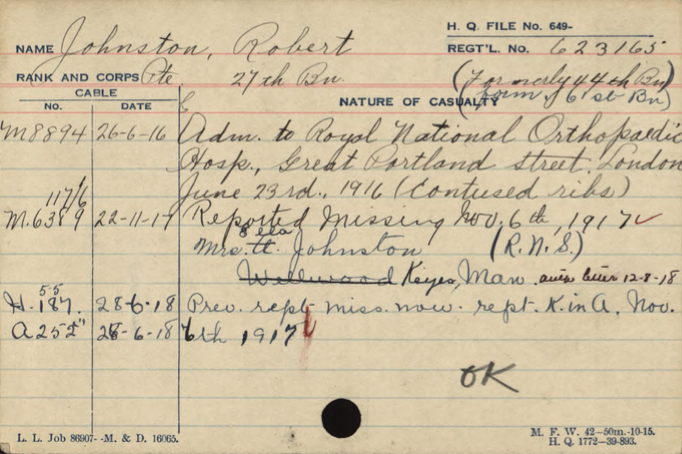 H. Q. FILE No. 649-
NAME Johnston, Robert
REGT'L. No. 623165
RANK AND CORPS Pte. 27th Bn. (Formerly 44th Bn)
CABLE
No. DATE NATURE OF CASUALTY
(from 61st Bn)
M8894 26-6-16 Adm. to Royal National Orthopaedic
Hosp., Great Portland street, London
June 23rd., 1916 (Contused ribs)
117/6
M.6389 22-11-17 Reported Missing Nov. 6th, 1917
Mrs. Johnston (R.N.S.)
Wellwood Keyes, Man. letter 12-8-18
55
H.187. 28-6-18 Prev. rept. miss. now rept. K. in A. Nov.
A252" 28-6-18 6th 1917
OK
L. L. Job 86907- -M. & D. 16065.
M. F. W. 42—50m.-10-15.
H. Q. 1772—39-893.